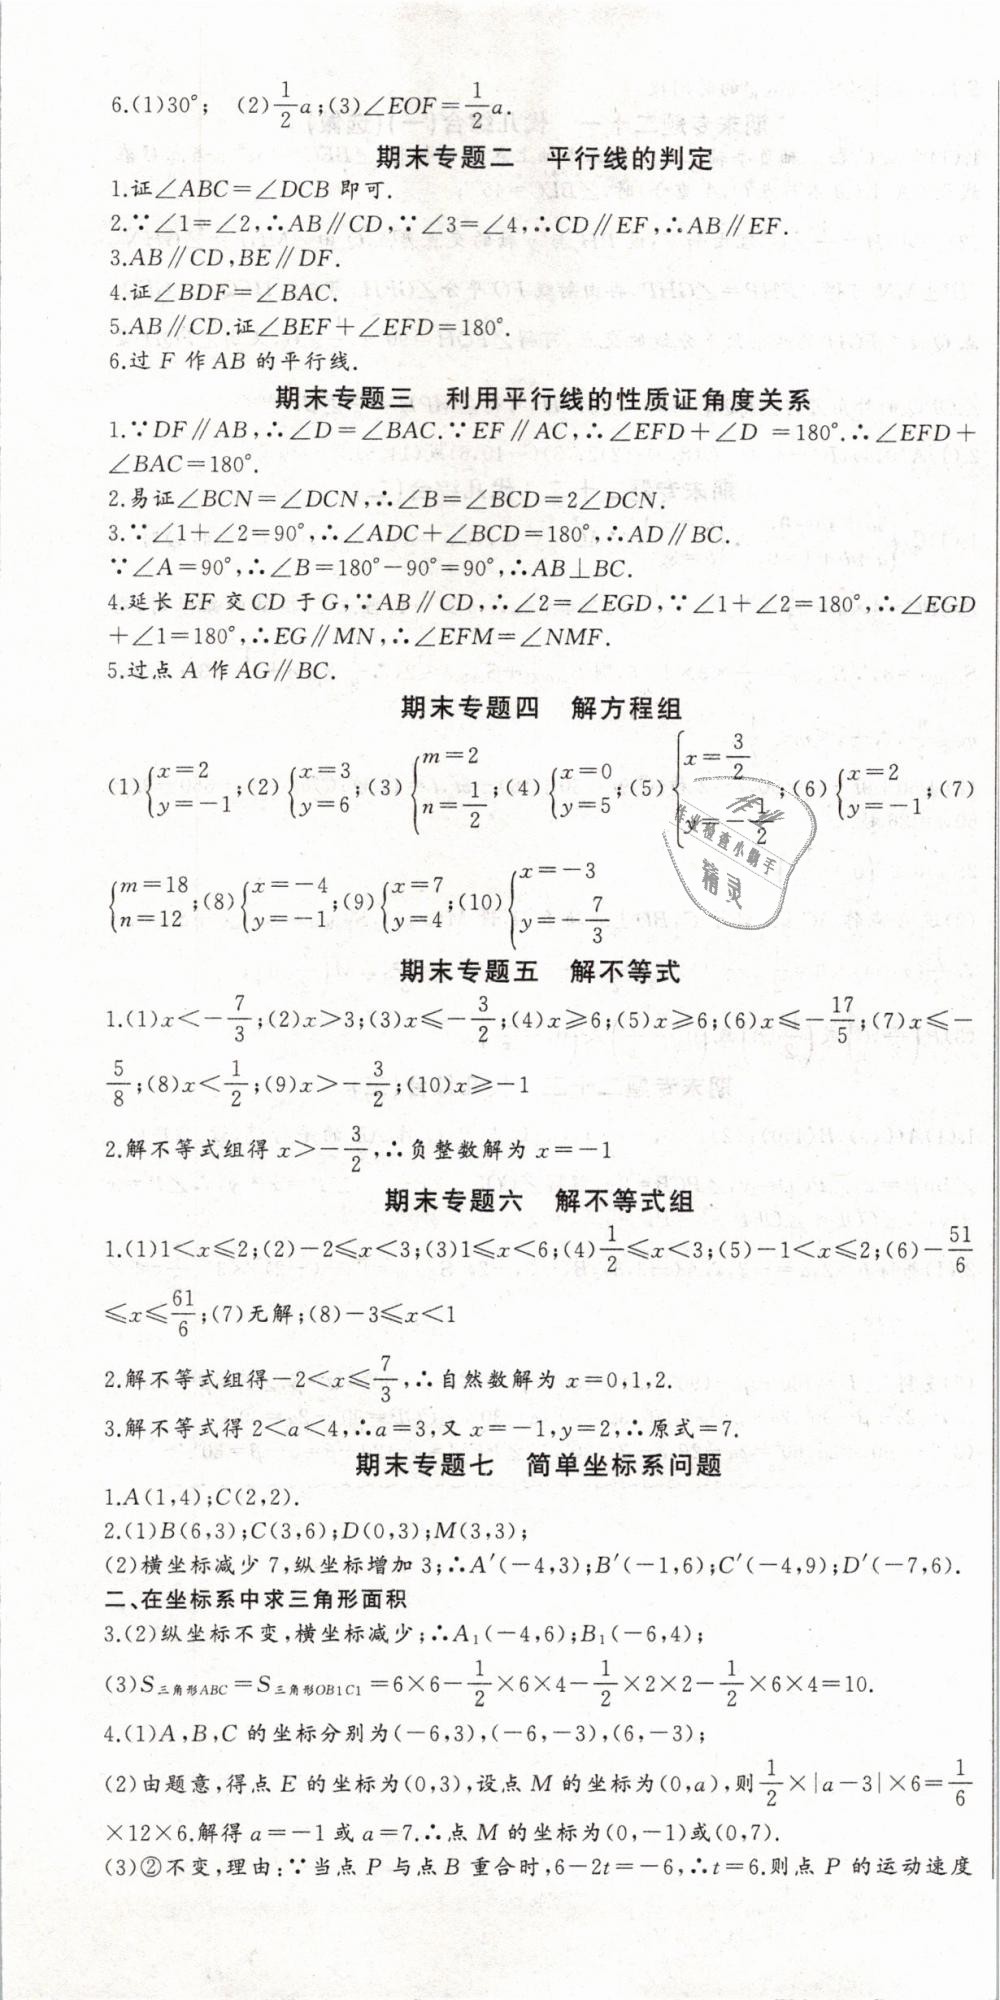 6.(1)30°; (2)1/2a;(3)∠EOF=1/2a.
期末专题二 平行线的判定
1.证∠ABC=∠DCB 即可.
2.∵∠1=∠2,∴AB∥CD,∵∠3=∠4,∴CD∥EF,∴AB∥EF.
3.AB∥CD,BE∥DF.
4.证∠BDF=∠BAC.
5.AB∥CD.证∠BEF+∠EFD=180°.
6.过 F 作 AB 的平行线.
期末专题三 利用平行线的性质证角度关系
1.∵DF∥AB,∴∠D=∠BAC.∵EF∥AC,∴∠EFD+∠D =180°.∴∠EFD+
∠BAC=180°.
2.易证∠BCN=∠DCN,∴∠B=∠BCD=2∠DCN.
3.∵∠1+∠2=90°,∴∠ADC+∠BCD=180°,∴AD∥BC.
∵∠A=90°,∴∠B=180°-90°=90°,∴AB⊥BC.
4.延长 EF 交 CD 于 G,∵AB∥CD,∴∠2=∠EGD,∵∠1+∠2=180°,∴∠EGD
+∠1=180°,∴EG∥MN,∴∠EFM=∠NMF.
5.过点 A 作 AG∥BC.
期末专题四 解方程组
(1){x=2 y=-1;(2){x=3 y=6;(3){m=2 n=1/2;(4){x=0 y=5;(5){x=3/2 y=-1/2;(6){x=2 y=-1;(7)
{m=18 n=12;(8){x=-4 y=-1;(9){x=7 y=4;(10){x=-3 y=-7/3
作业
作业检查小助手
精灵
期末专题五 解不等式
1.(1)x<-7/3;(2)x>3;(3)x≤-3/2;(4)x≥6;(5)x≥6;(6)x≤-17/5;(7)x≤-
5/8;(8)x<1/2;(9)x>-3/2;(10)x≥-1
2.解不等式组得 x>-3/2,∴负整数解为 x=-1
期末专题六 解不等式组
1.(1)1<x≤2;(2)-2≤x<3;(3)1≤x<6;(4)1/2≤x<3;(5)-1<x≤2;(6)-51/6
≤x≤61/6;(7)无解;(8)-3≤x<1
2.解不等式组得-2<x≤7/3,∴自然数解为 x=0,1,2.
3.解不等式得 2<a<4,∴a=3,又 x=-1,y=2,∴原式=7.
期末专题七 简单坐标系问题
1.A(1,4);C(2,2).
2.(1)B(6,3);C(3,6);D(0,3);M(3,3);
(2)横坐标减少 7,纵坐标增加 3;∴A′(-4,3);B′(-1,6);C′(-4,9);D′(-7,6).
二、在坐标系中求三角形面积
3.(2)纵坐标不变,横坐标减少;∴A₁(-4,6);B₁(-6,4);
(3)S三角形ABC=S三角形OB1C1=6×6-1/2×6×4-1/2×2×2-1/2×6×4=10.
4.(1)A,B,C 的坐标分别为(-6,3),(-6,-3),(6,-3);
(2)由题意,得点 E 的坐标为(0,3),设点 M 的坐标为(0,a),则1/2×|a-3|×6=1/6
×12×6.解得 a=-1 或 a=7.∴点 M 的坐标为(0,-1)或(0,7).
(3)②不变,理由:∵当点 P 与点 B 重合时,6-2t=-6,∴t=6.则点 P 的运动速度